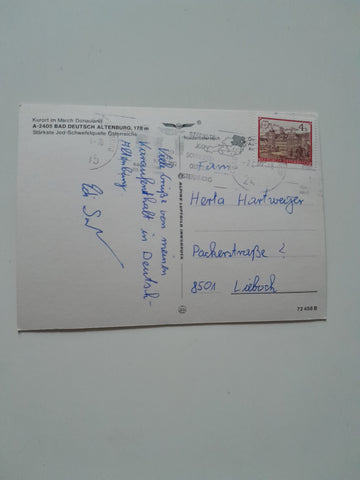 Kurort im March Donauland
A-2405 BAD DEUTSCH ALTENBURG, 178 m
Stärkste Jod-Schwefelquelle Österreichs
Viele Grüße von meinem
Kuraufenthalt in Deutsch-
Altenburg
4 S
Fam.
Herta Hartweger
Packerstraße 2
8501 Lieboch
72 458 B
15
24